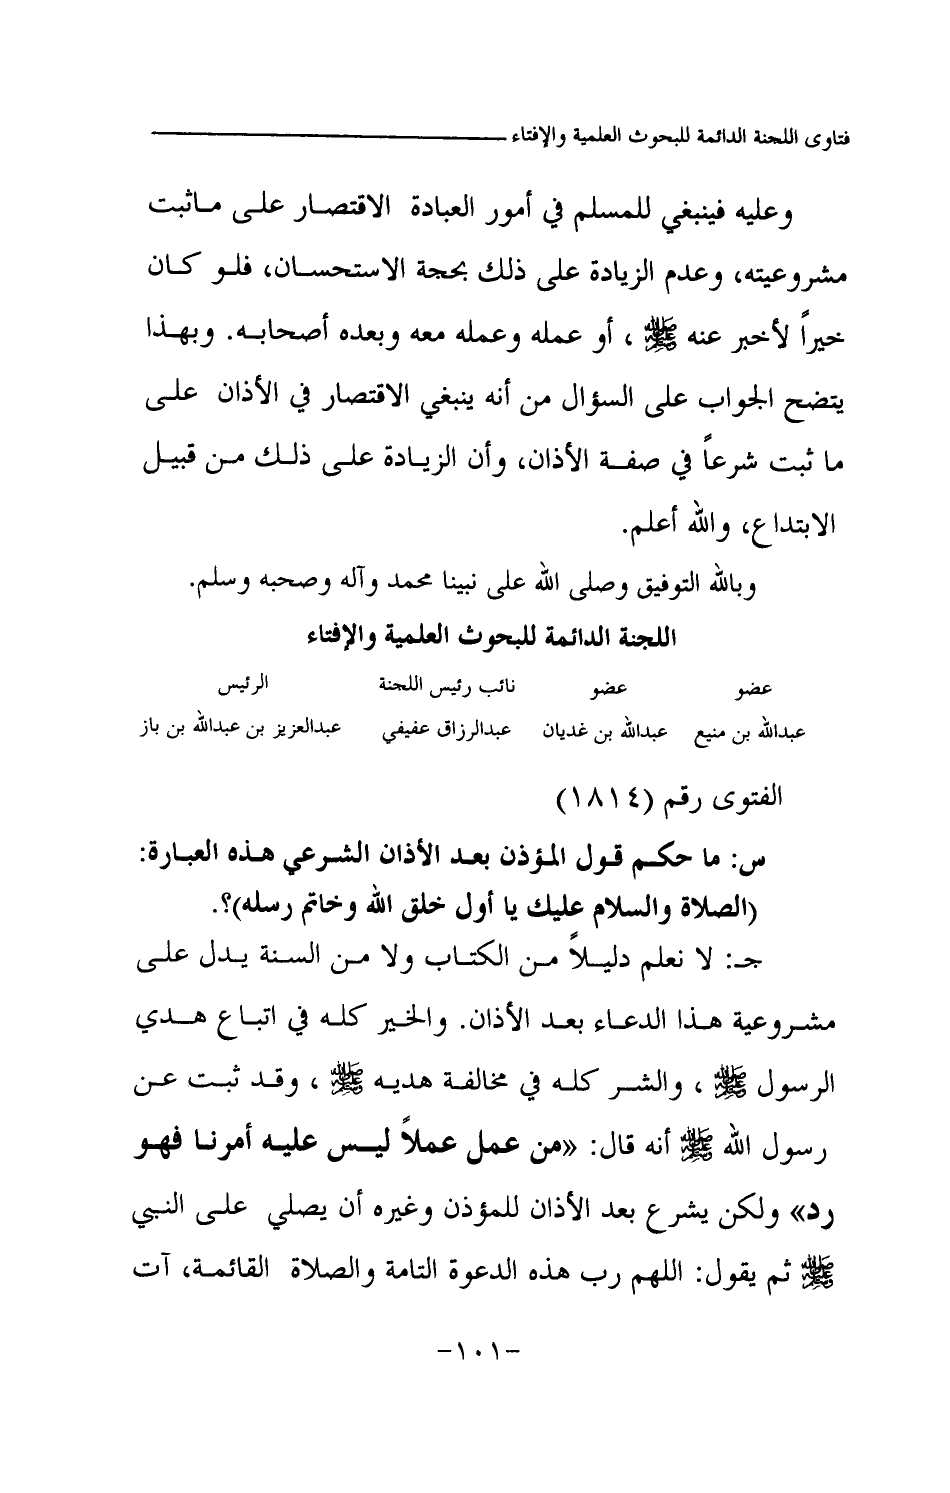 فتاوى اللجنة الدائمة للبحوث العلمية والإفتاء
وعليه فينبغي للمسلم في أمور العبادة الاقتصار على ماثبت
مشروعيته، وعدم الزيادة على ذلك بحجة الاستحسان، فلو كان
خيراً لأخبر عنه ﷺ ، أو عمله وعمله معه وبعده أصحابه. وبهذا
يتضح الجواب على السؤال من أنه ينبغي الاقتصار في الأذان على
ما ثبت شرعاً في صفة الأذان، وأن الزيادة على ذلك من قبيل
الابتداع، والله أعلم.
وبالله التوفيق وصلى الله على نبينا محمد وآله وصحبه وسلم.
اللجنة الدائمة للبحوث العلمية والإفتاء
عضو عضو نائب رئيس اللجنة الرئيس
عبدالله بن منيع عبدالله بن غديان عبدالرزاق عفيفي عبدالعزيز بن عبدالله بن باز
الفتوى رقم (١٨١٤)
س: ما حكم قول المؤذن بعد الأذان الشرعي هذه العبارة:
(الصلاة والسلام عليك يا أول خلق الله وخاتم رسله)؟.
جـ: لا نعلم دليلاً من الكتاب ولا من السنة يدل على
مشروعية هذا الدعاء بعد الأذان. والخير كله في اتباع هدي
الرسول ﷺ ، والشر كله في مخالفة هديه ﷺ ، وقد ثبت عن
رسول الله ﷺ أنه قال: «من عمل عملاً ليس عليه أمرنا فهو
رد» ولكن يشرع بعد الأذان للمؤذن وغيره أن يصلي على النبي
ﷺ ثم يقول: اللهم رب هذه الدعوة التامة والصلاة القائمة، آت
-١٠١-